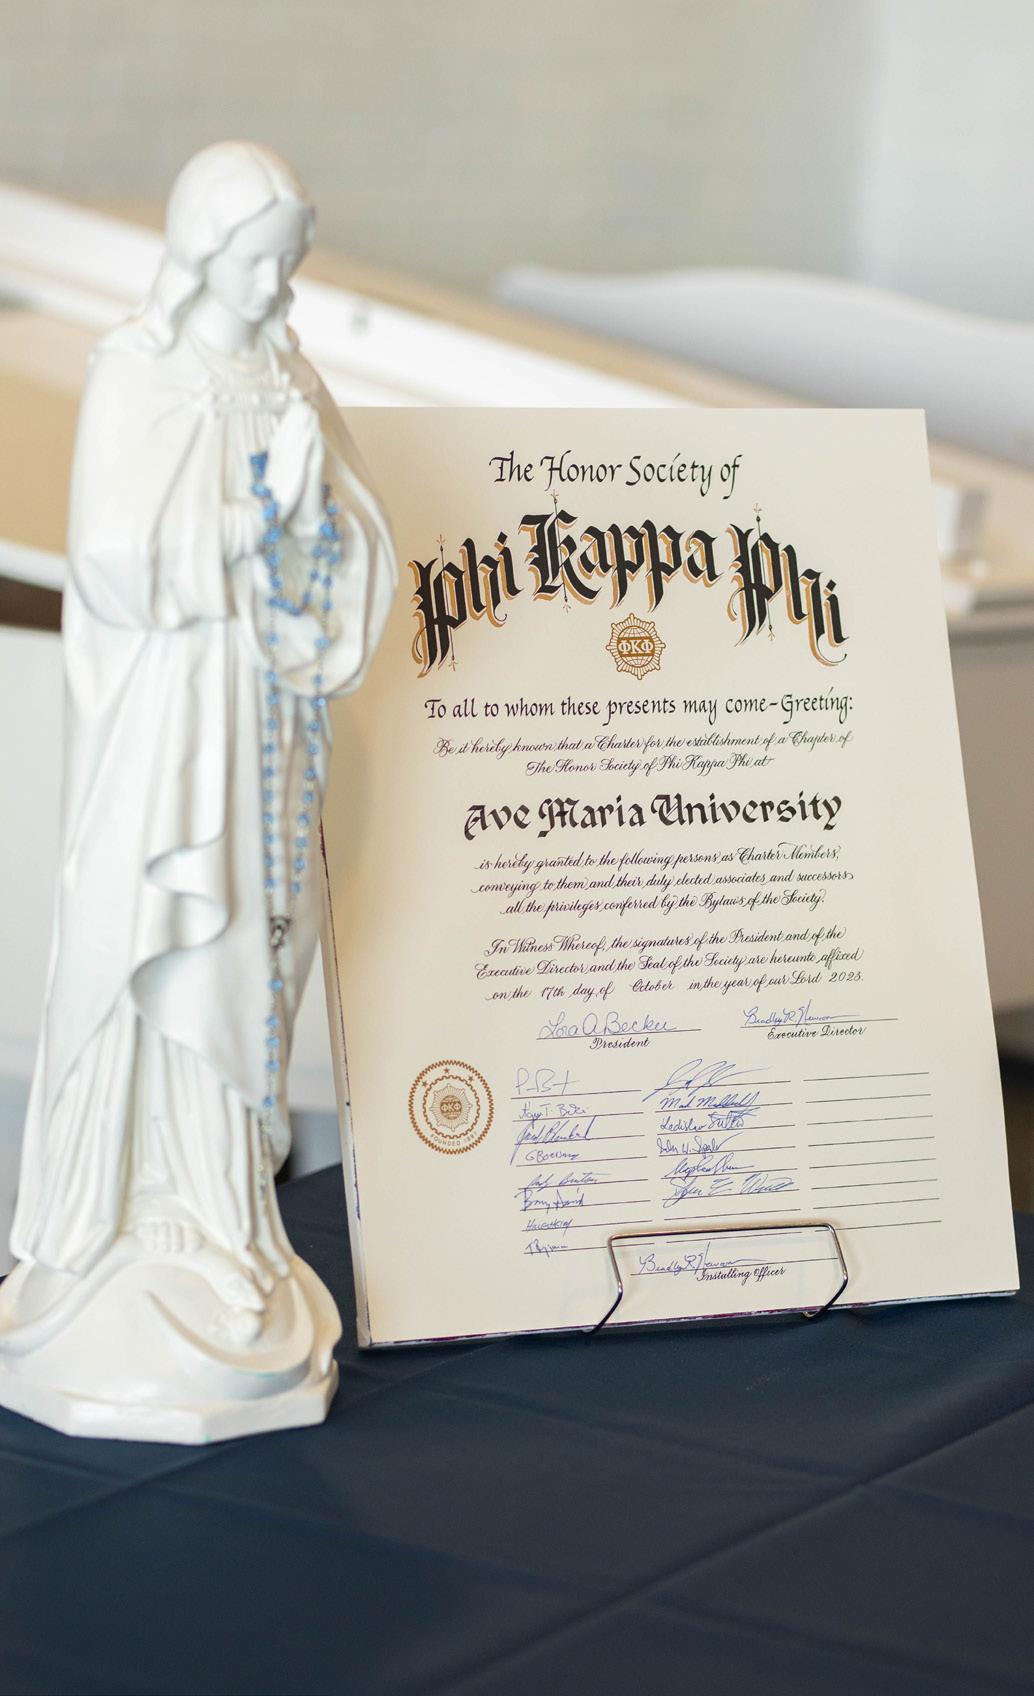 The Honor Society of
Phi Kappa Phi
ΦΚΦ
To all to whom these presents may come-Greeting:
Be it hereby known that a Charter for the establishment of a Chapter of
The Honor Society of Phi Kappa Phi at
Ave Maria University
is hereby granted to the following persons as Charter Members,
conveying to them and their duly elected associates and successors
all the privileges conferred by the Bylaws of the Society.
In Witness Whereof, the signatures of the President and of the
Executive Director and the Seal of the Society are hereunto affixed
on the 17th day of October in the year of our Lord 2023.
Lora A Becker
President
Executive Director
ΦΚΦ
FOUNDED
Installing Officer